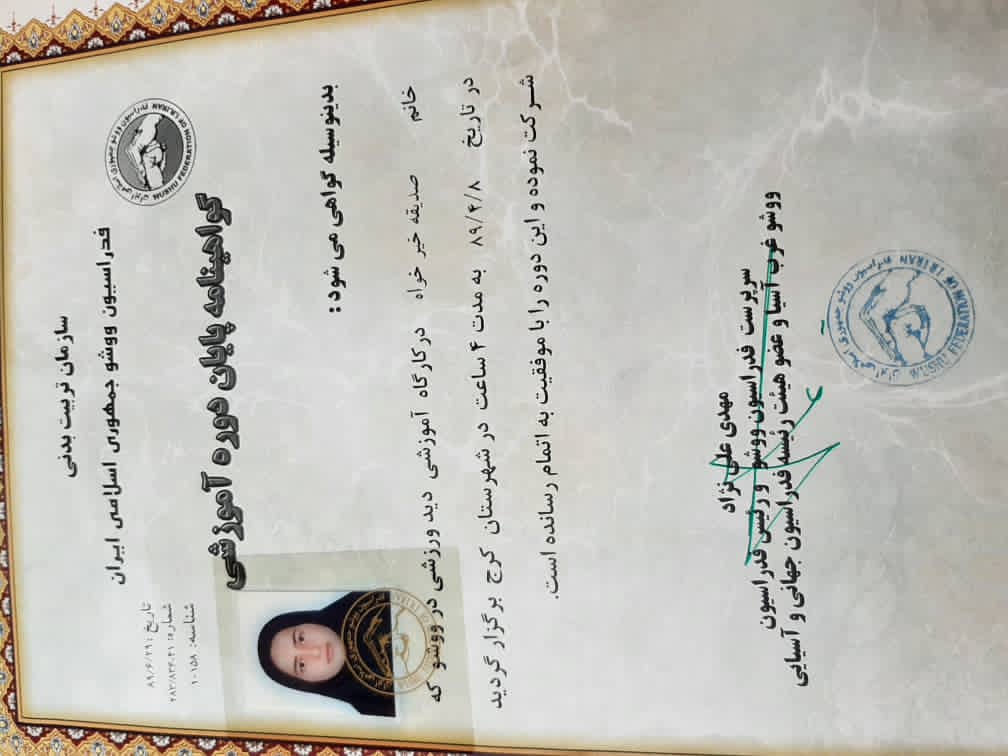 سازمان تربیت بدنی
فدراسیون ووشو جمهوری اسلامی ایران
فدراسیون ووشو جمهوری اسلامی ایران
WUSHU FEDERATION OF I.R.IRAN
تاریخ: ۸۹/۶/۲۹
شماره: ۲۸۲/۸۳۶-۲۱
شناسه: ۱۰۱۵۸
گواهینامه پایان دوره آموزشی
بدینوسیله گواهی می شود:
خانم صدیقه خیر خواه درکارگاه آموزشی دید ورزشی در ووشو که
در تاریخ ۸۹/۴/۸ به مدت ۴ ساعت در شهرستان کرج برگزار گردید
شرکت نموده و این دوره را با موفقیت به اتمام رسانده است.
مهدی علی نژاد
سرپرست فدراسیون ووشو و رئیس فدراسیون
ووشو غرب آسیا و عضو هیئت رئیسه فدراسیون جهانی و آسیایی
فدراسیون ووشو جمهوری اسلامی ایران
WUSHU FEDERATION OF I.R.IRAN